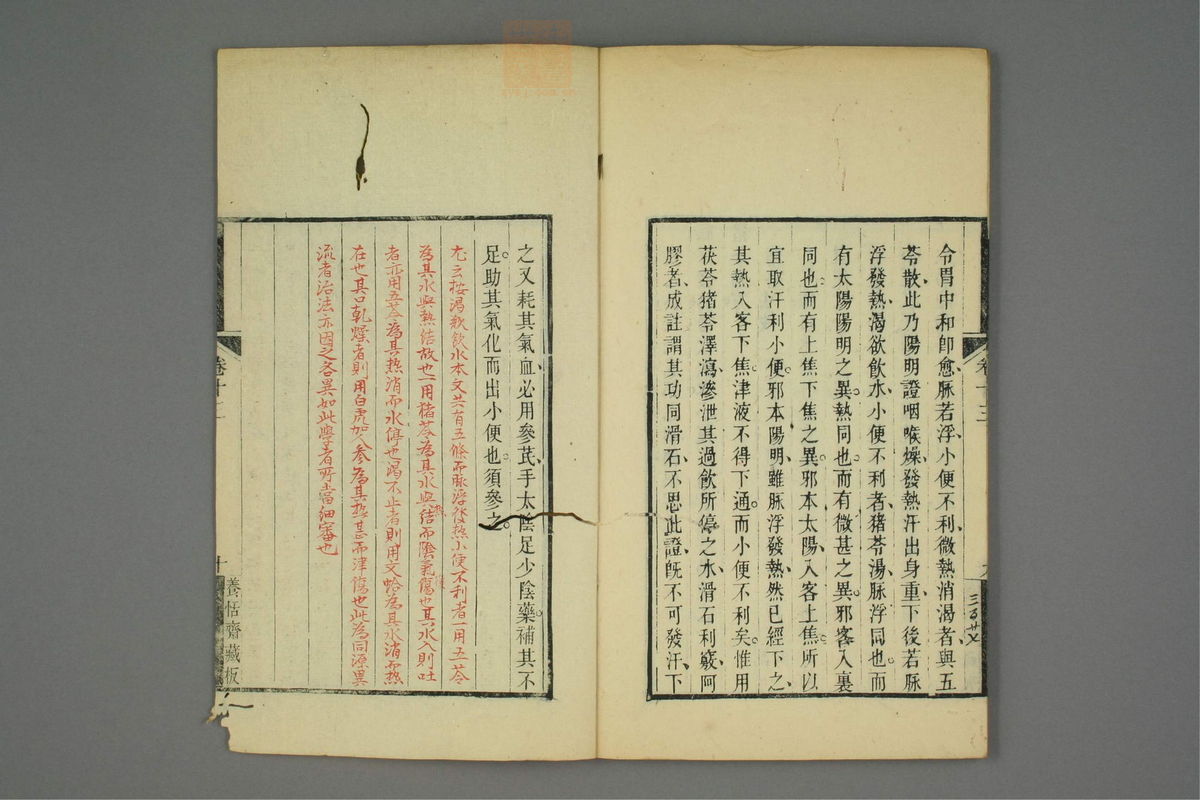 令胃中和即愈脉若浮小便不利微熱消渴者與五
苓散此乃陽明證咽喉燥發熱汗出身重下後若脉
浮發熱渴欲飲水小便不利者猪苓湯脉浮同也而
有太陽陽明之異熱同也而有微甚之異邪客入裏
同也而有上焦下焦之異邪本太陽入客上焦所以
宜取汗利小便邪本陽明雖脉浮發熱然已經下之
其熱入客下焦津液不得下通而小便不利矣惟用
茯苓猪苓澤瀉滲泄其過飲所停之水滑石利竅阿
膠者成註謂其功同滑石不思此證旣不可發汗下
卷十三
九
之又耗其氣血必用參芪手太陰足少陰藥補其不
足助其氣化而出小便也須參之
尤云按渴欲飲水本文共有五條而脉浮發熱小便不利者一用五苓
為其水與熱結故也一用猪苓為其水與熱結而陰氣復傷也其水入則吐
者亦用五苓為其熱消而水停也渴不止者則用文蛤為其水消而熱
在也其口乾燥者則用白虎加人參為其熱甚而津傷也此為同源異
流者治法亦因之各異如此學者所當細審也
卷十二
十
養恬齋藏板